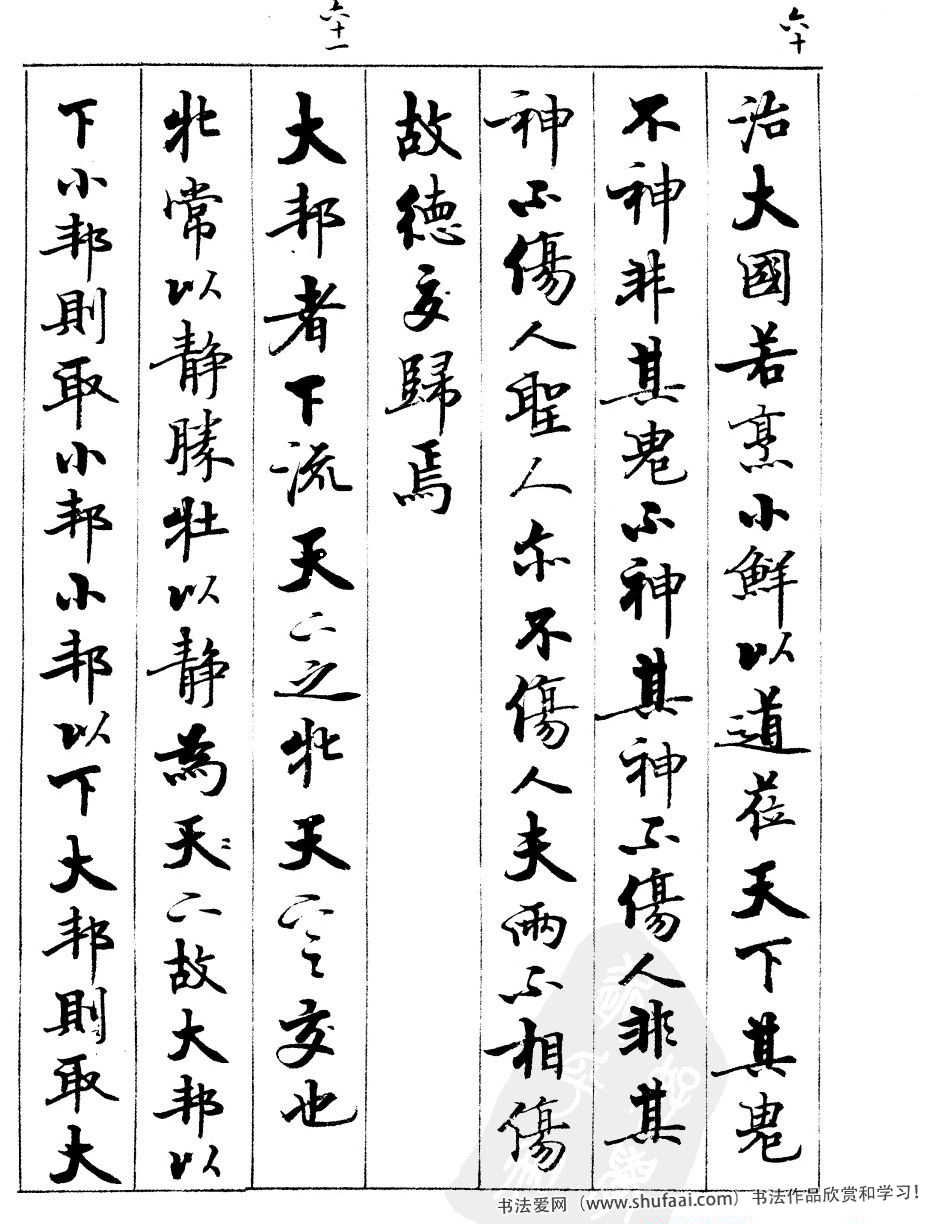 六十
治大國若烹小鮮以道莅天下其鬼
不神非其鬼不神其神不傷人非其
神不傷人聖人亦不傷人夫兩不相傷
故德交歸焉
六十一
大邦者下流天下之牝天下之交也
牝常以静勝牡以静為天下故大邦以
下小邦則取小邦小邦以下大邦則取大
书法爱网（www.shufaai.com）书法作品欣赏和学习！